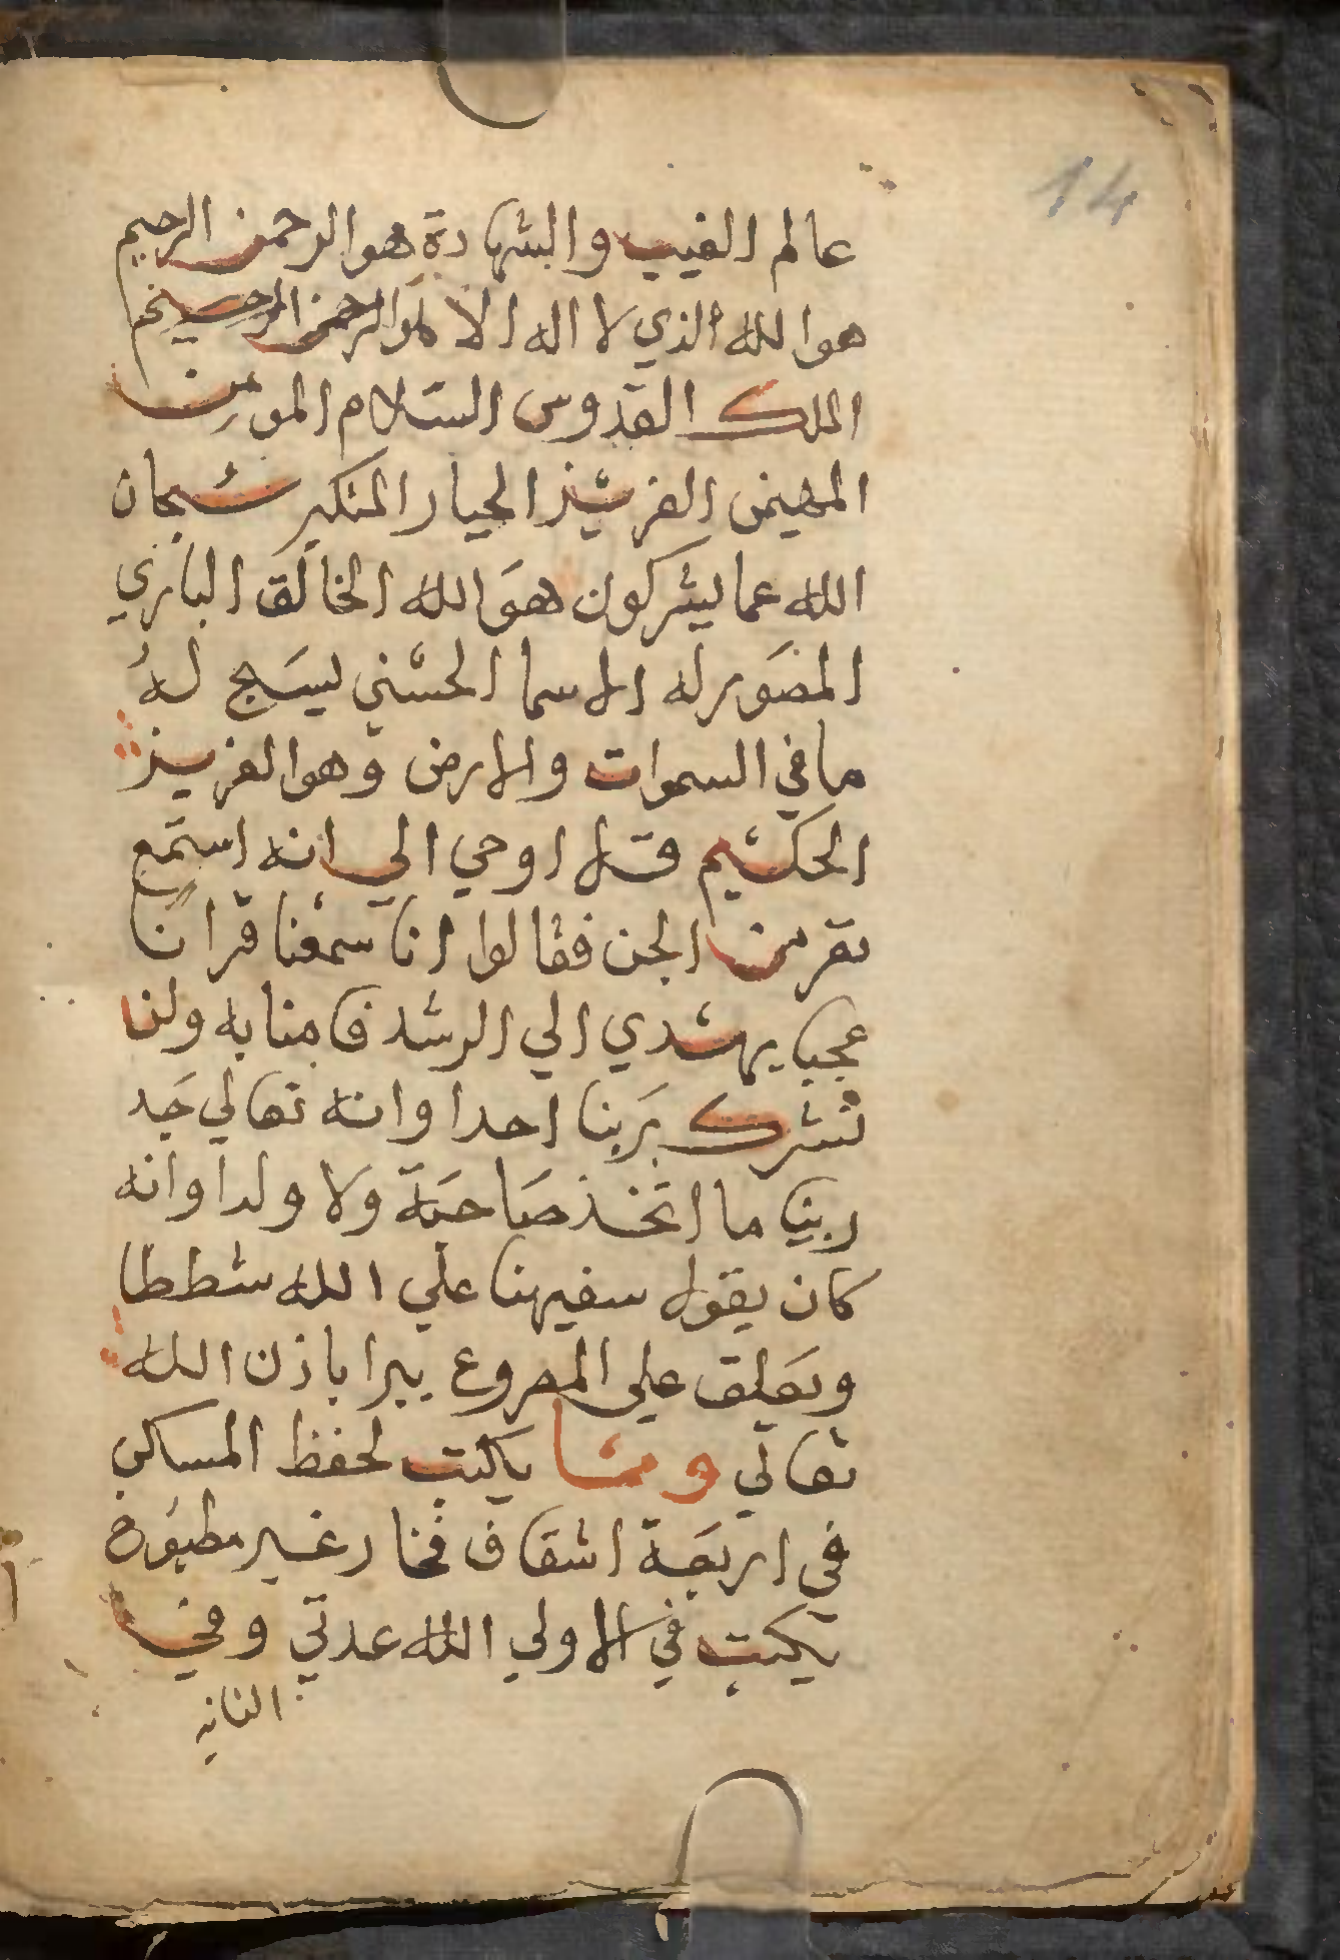 14
عالم الغيب والشهادة هو الرحمن الرحيم
هو الله الذي لا اله الا هو الرحمن الرحيم
الملك القدوس السلام المومن
المهيمن العزيز الجبار المتكبر سبحان
الله عما يشركون هو الله الخالق الباري
المصور له الاسما الحسني يسبح له
ما في السموات والارض وهو العزيز
الحكيم قل اوحي الي انه استمع
نفر من الجن فقالوا انا سمعنا قرانا
عجبا يهدي الي الرشد فامنا به ولن
نشرك بربنا احدا وانه تعالي جد
ربنا ما اتخذ صاحبة ولا ولدا وانه
كان يقول سفيهنا علي الله شططا
ويعلق علي المصروع يبرا باذن الله
تعالي ومما يكتب لحفظ المساكن
في اربعة اشقاف فخار غير مطبوخ
يكتب في الاولي الله عدتي وفي
الثانيه